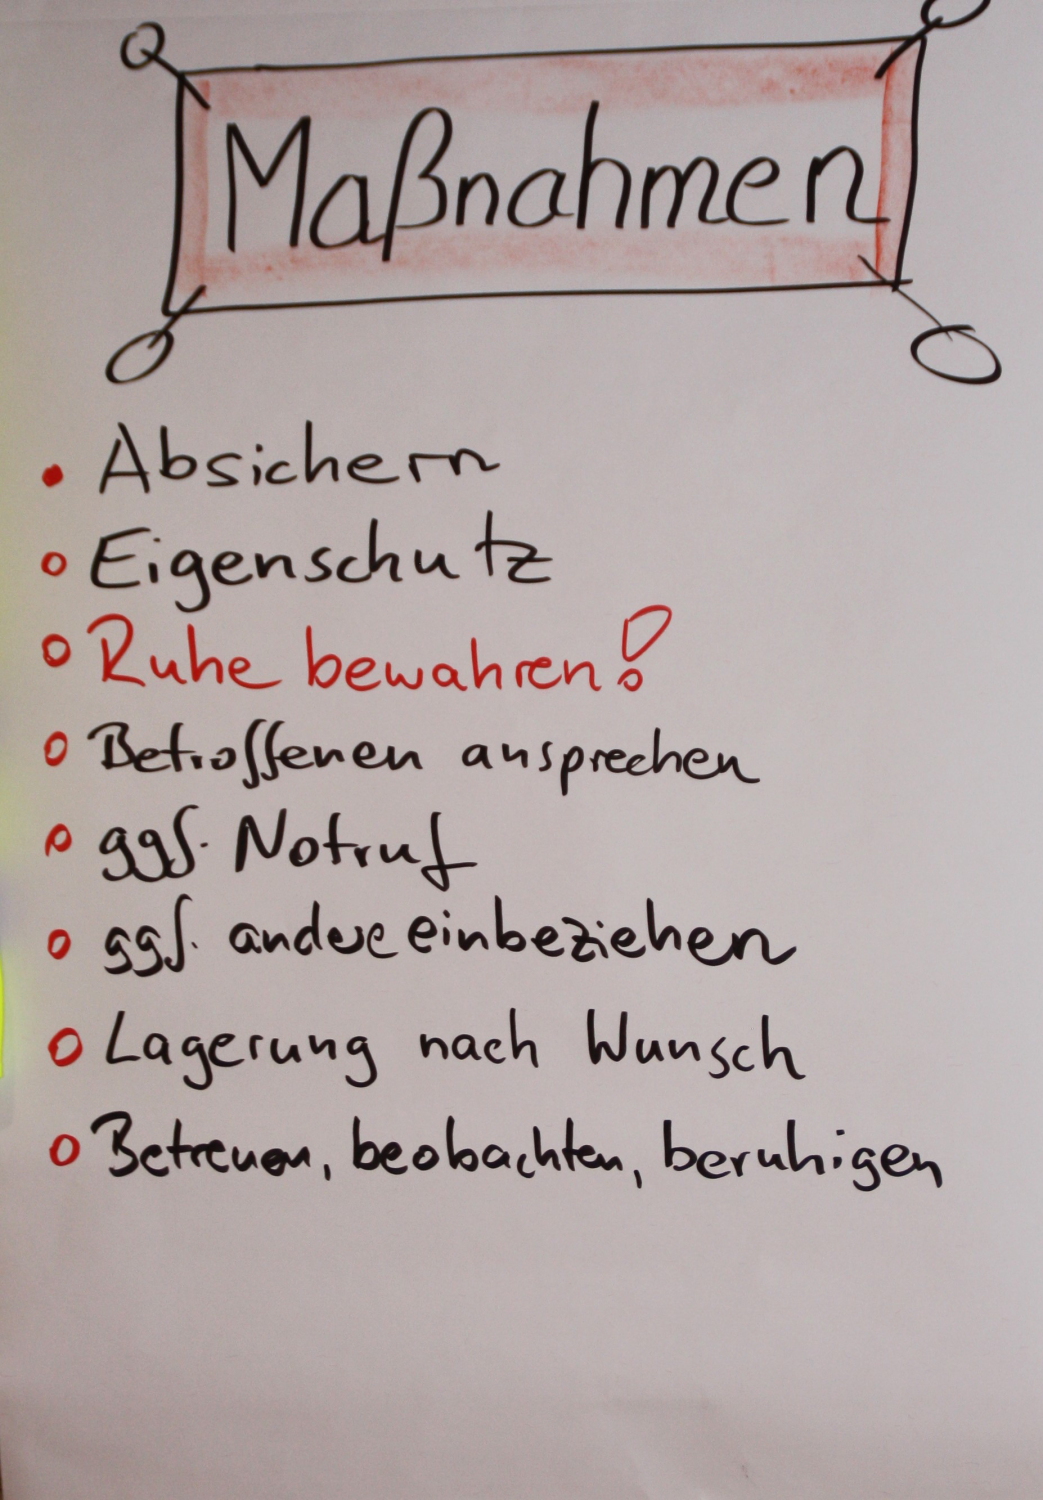 Maßnahmen
Absichern
Eigenschutz
Ruhe bewahren!
Betroffenen ansprechen
ggf. Notruf
ggf. andere einbeziehen
Lagerung nach Wunsch
Betreuen, beobachten, beruhigen